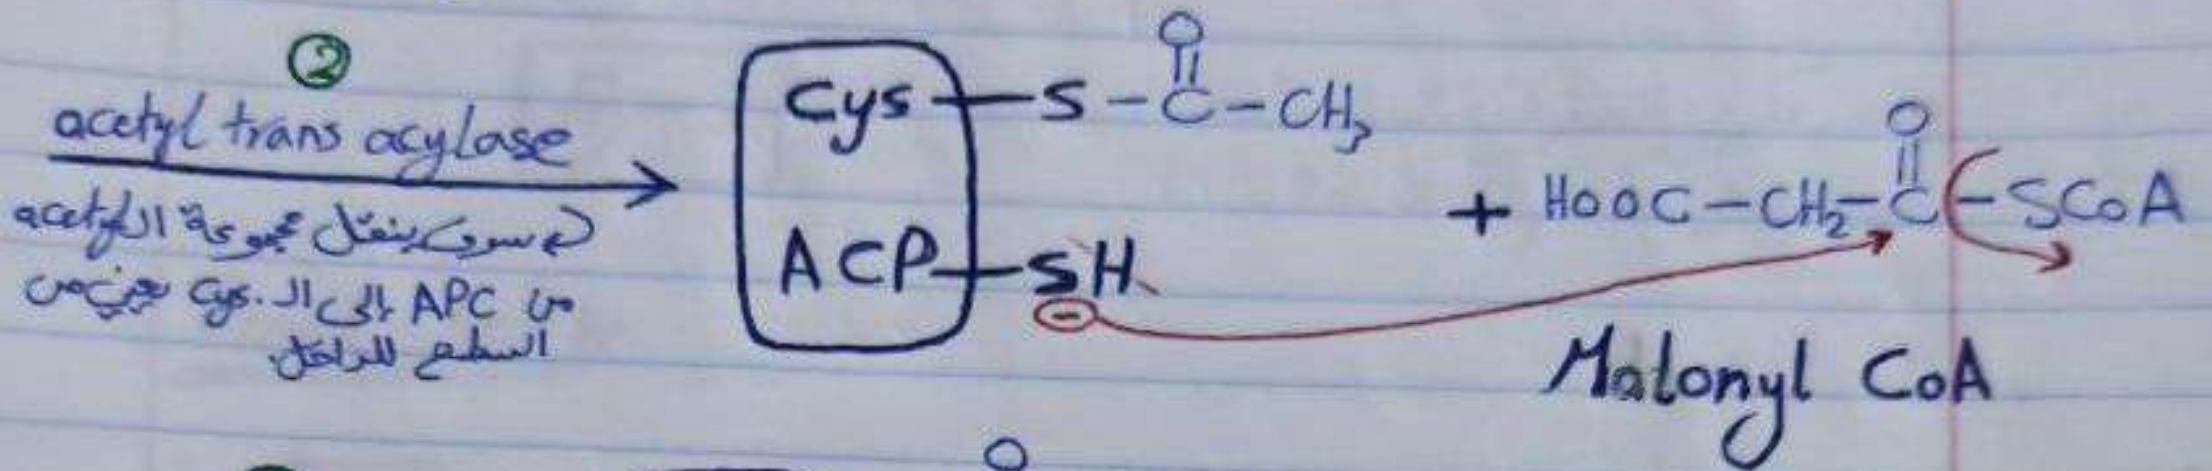 ②
acetyl trans acylase
سوف ينقل مجموعة الـ acetyl
من APC إلى الـ Cys. يعني من
السطح للداخل.
Cys—S—C—CH3
O
ACP—SH
−
+ HOOC—CH2—C—SCoA
O
Malonyl CoA
O